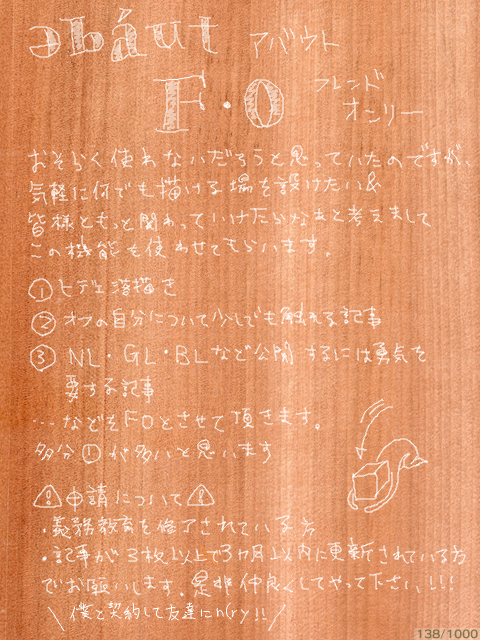 əbáut アバウト
F・O フレンド
オンリー
おそらく使わないだろうと思っていたのですが、
気軽に何でも描ける場を設けたい&
皆様ともっと関わっていけたらなぁと考えまして
この機能を使わせてもらいます。
①ヒデェ落描き
②オフの自分について少しでも触れる記事
③NL・GL・BLなど公開するには勇気を
要する記事
…などをFOとさせて頂きます。
多分①が多いと思います
⚠申請について⚠
・義務教育を終了されている方
・記事が3枚以上で3ヵ月以内に更新されている方
でお願いします。是非仲良くしてやって下さい!!!
\僕と契約して友達にn(ry!!/
138/1000